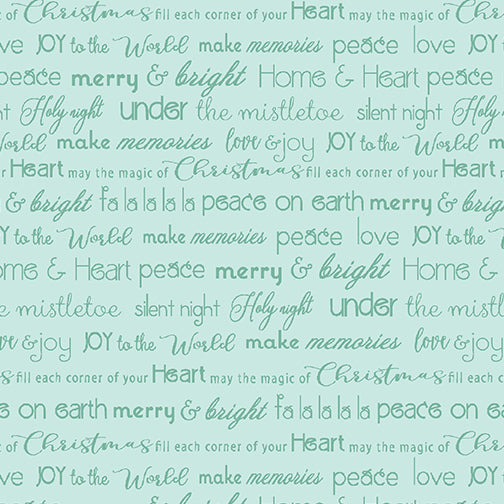 of Christmas fill each corner of your Heart may the magic of Ch
ve JOY to the World make memories peace love JOY
peace merry & bright Home & Heart peace
ht Holy night under the mistletoe silent night Holy
World make memories love & joy JOY to the World m
r Heart may the magic of Christmas fill each corner of your Heart m
& bright fa la la la la peace on earth merry & brig
Y to the World make memories peace love JOY to the W
ome & Heart peace merry & bright Home &
e mistletoe silent night Holy night under the mist
ve & joy JOY to the World make memories love & joy
s fill each corner of your Heart may the magic of Christmas fill each c
e on earth merry & bright fa la la la la peace on ea
of Christmas fill each corner of your Heart may the magic of Ch
ve JOY to the World make memories peace love JOY
peace merry & bright Home & Heart peace